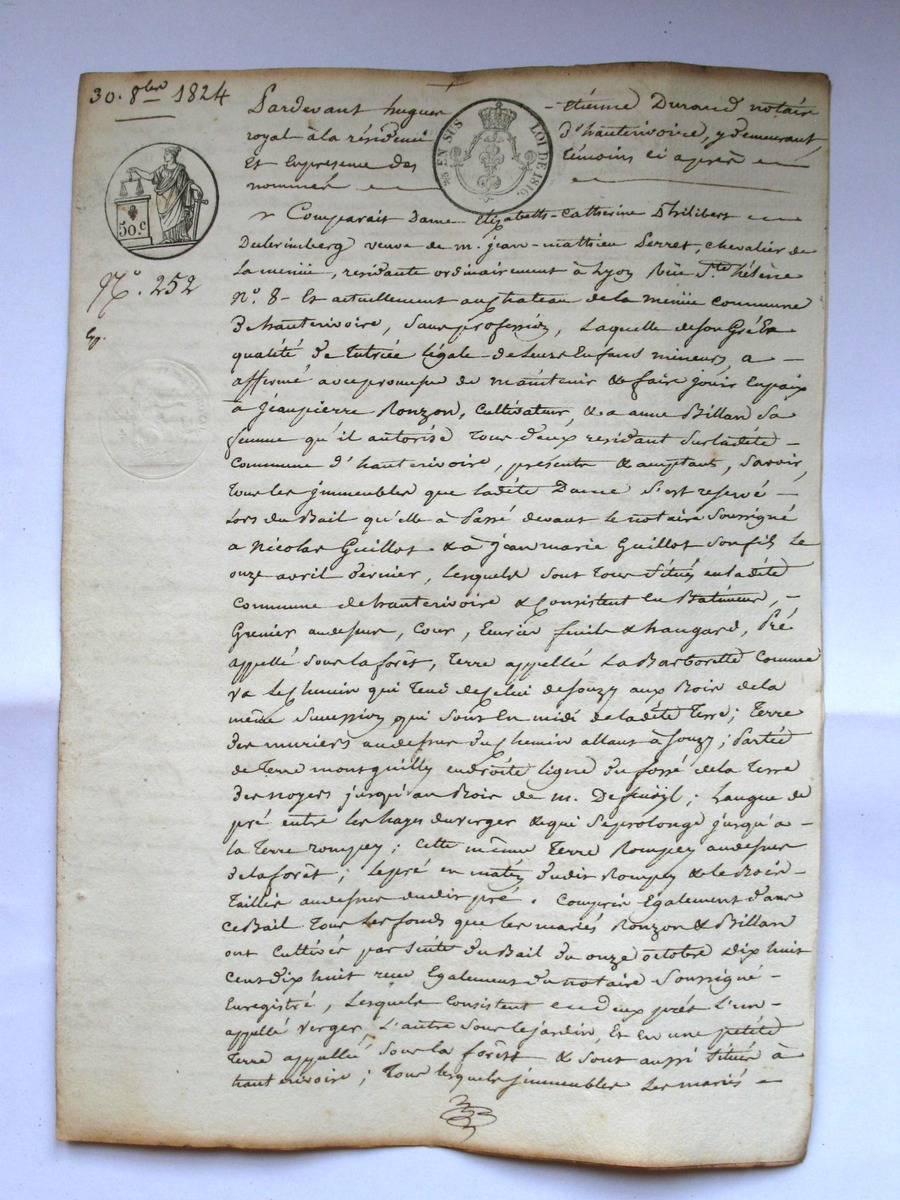 30. 8bre 1824
Pardevant hugues étienne Durand notaire
royal à la résidence d'hauterivoire, y demeurant,
Et En presence des témoins ci après
nommés
EN SUS LOI DE 1816.
50.c
N°. 252
Comparait Dame Elizabeth-Catherine Philibert
veuve de m. jean-mathieu Perret, chevalier de
Lamenüe, residante ordinairement à Lyon Rüe Ste héléne
N°. 8 Et actuellement au chateau de la menüe commune
d'hauterivoire, sans profession, Laquelle de son Gré En
qualité de Tutrice légale de Leurs Enfans mineurs, a
affermé avec promesse de maintenir & faire jouir En paix
à Jean pierre Ronzon, Cultivateur, & a anne Billan sa
femme qu'il autorise Tous deux residant sur ladite
commune d'hauterivoire, présents & acceptants, Savoir,
Tous les jmmeubles que ladite Dame s'est reservé
Lors du Bail qu'elle à Passé devant le notaire Soussigné
a Nicolas Guillot & à Jean marie Guillot son fils Le
onze avril dernier, Lesquels sont Tous situés en ladite
commune de hauterivoire & Consistent En Batimens,
Grenier au dessus, Cour, Ecurie fenile & hangard, Pré
appellé sous la forêt, Terre appellée La Barborette Comme
va le Chemin qui Tend de Celui de Souzy aux Bois de la
même Succession qui sont En midi de ladite Terre; Terre
des muriers au dessus du Chemin allant à Souzy; Partie
de Terre montguilly en droite ligne du fossé de la Terre
des noyers jusqu'au Bois de m. ; Langue de
pré entre les hayes du verger & qui se prolonge jusqu'a
la Terre rompey; Cette même Terre Rompey au dessus
de la forêt; le pré en dudit Rompey & le Bois
Taillis au dessus dudit pré. Compris Egalement dans
Ce Bail Tous Les fonds que les mariés Ronzon & Billan
ont Cultivés par suite du Bail du onze octobre Dix huit
Cent dix huit recu Egalement du notaire Soussigné
Enregistré, Lesquels Consistent en deux prés L'un
appellé verger, L'autre sous le jardin, Et En une petite
Terre appellée sous la forêst & sont aussi situés à
hauterivoire; Tous lesquels jmmeubles Les mariés